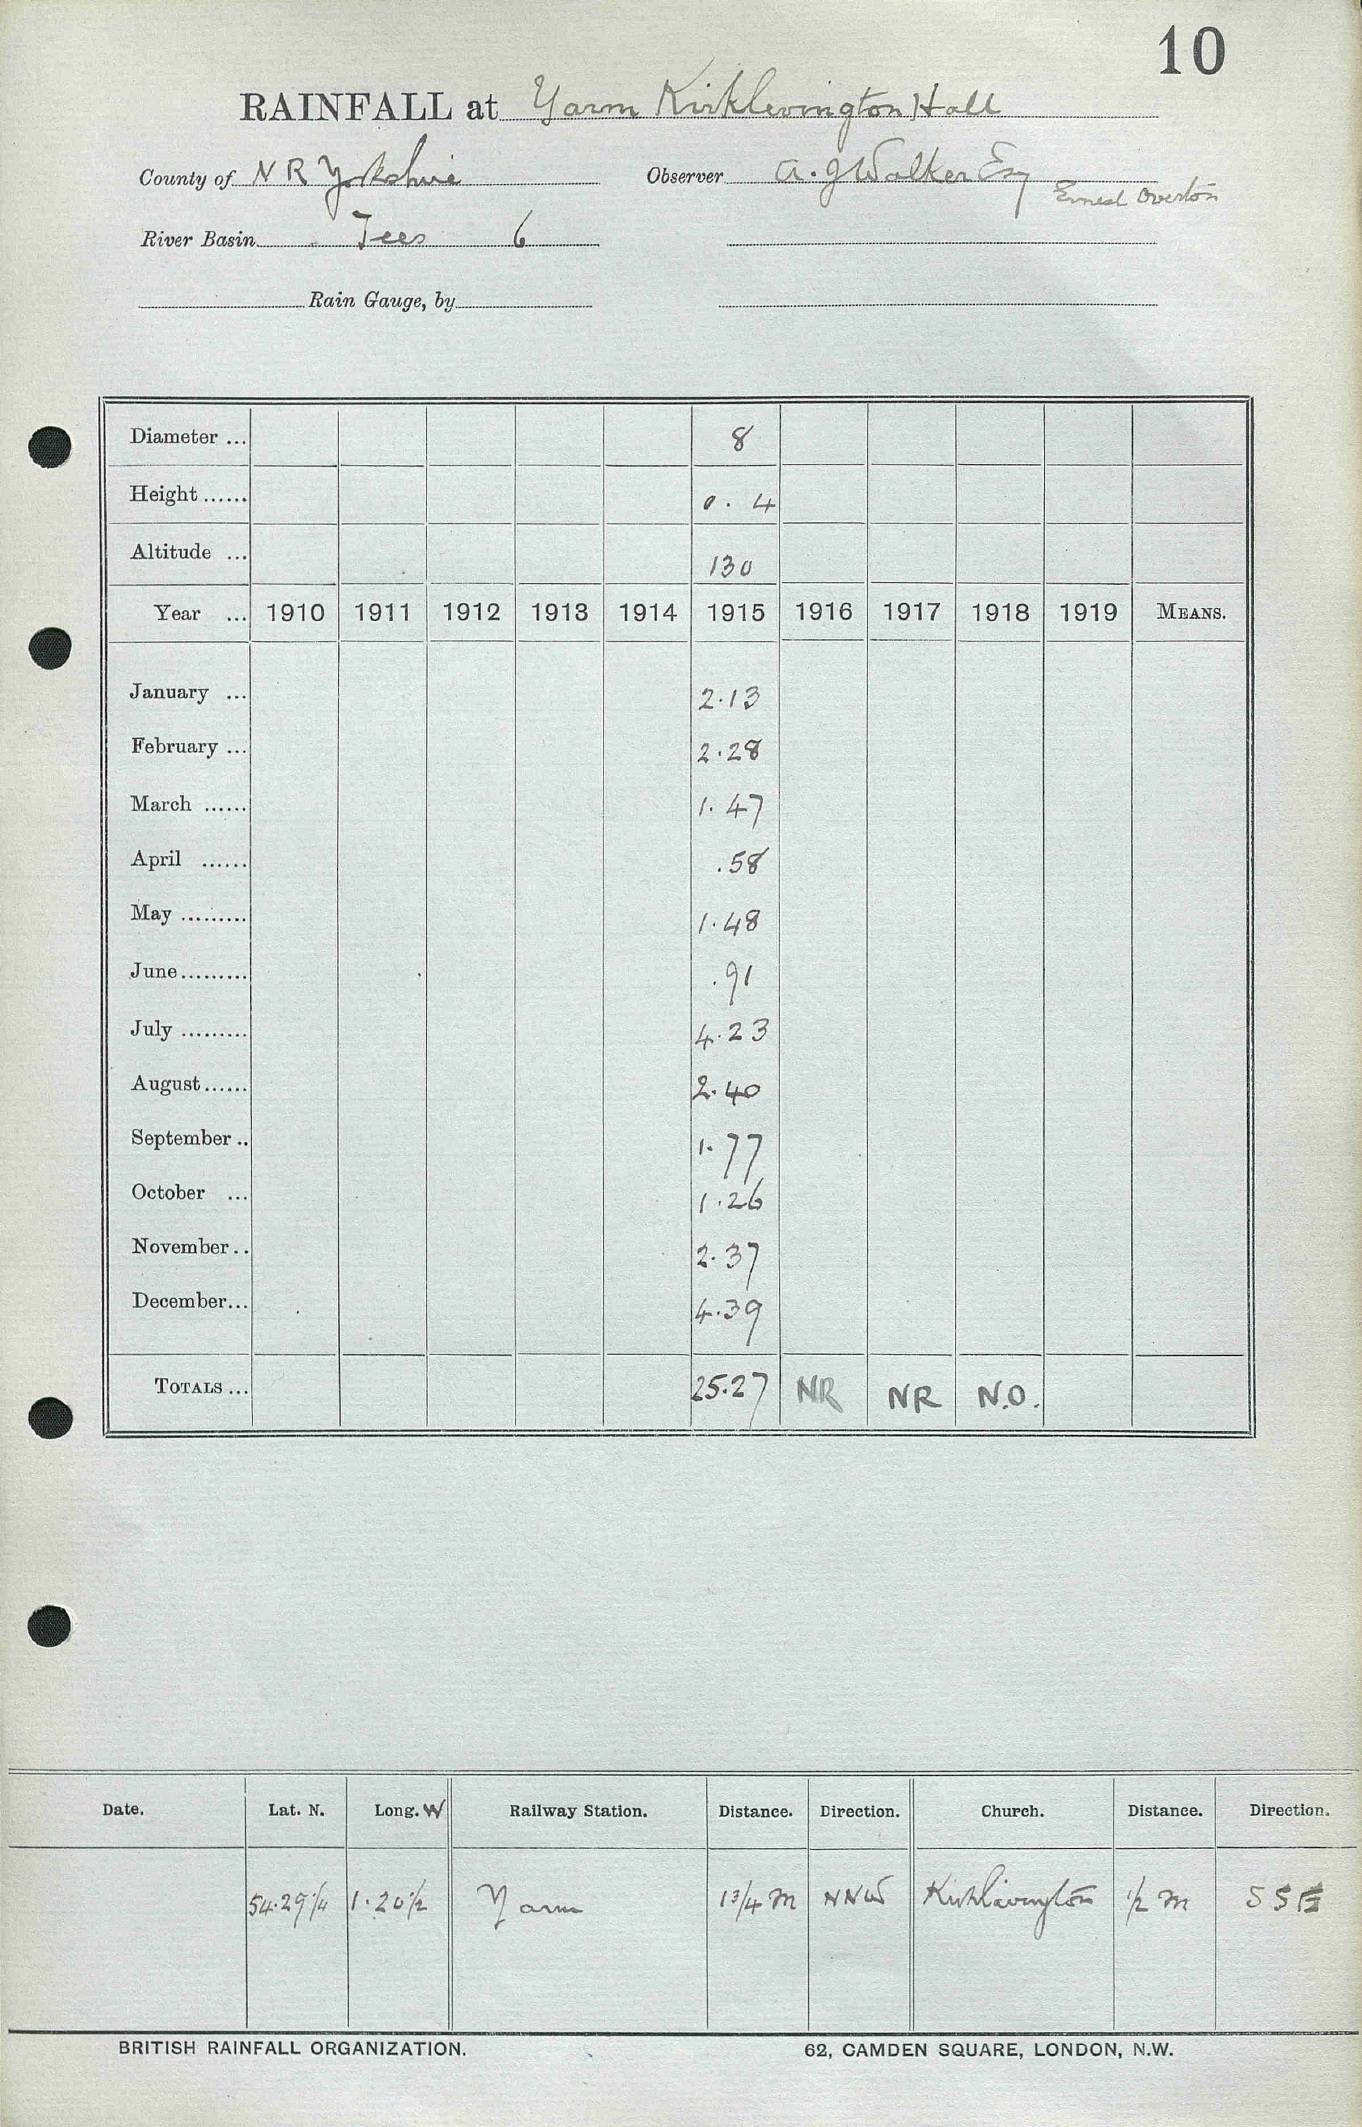 10
RAINFALL at Yarm Kirklevington Hall
County of N R Yorkshire Observer A. J Walker Esq
Ernest Overton
River Basin Tees 6
Rain Gauge, by
Diameter ... 8
Height ...... 0. 4
Altitude ... 130
Year ... 1910 1911 1912 1913 1914 1915 1916 1917 1918 1919 MEANS.
January ... 2.13
February ... 2.28
March ...... 1.47
April ...... .58
May ......... 1.48
June ......... .91
July ......... 4.23
August ...... 2.40
September .. 1.77
October ... 1.26
November .. 2.37
December ... 4.39
TOTALS ... 25.27 NR NR N.O.
Date. Lat. N. Long. W Railway Station. Distance. Direction. Church. Distance. Direction.
54.29 1/4 1.20 1/2 Yarm 1 3/4 m NNW Kirklevington 1/2 m SSE
BRITISH RAINFALL ORGANIZATION. 62, CAMDEN SQUARE, LONDON, N.W.